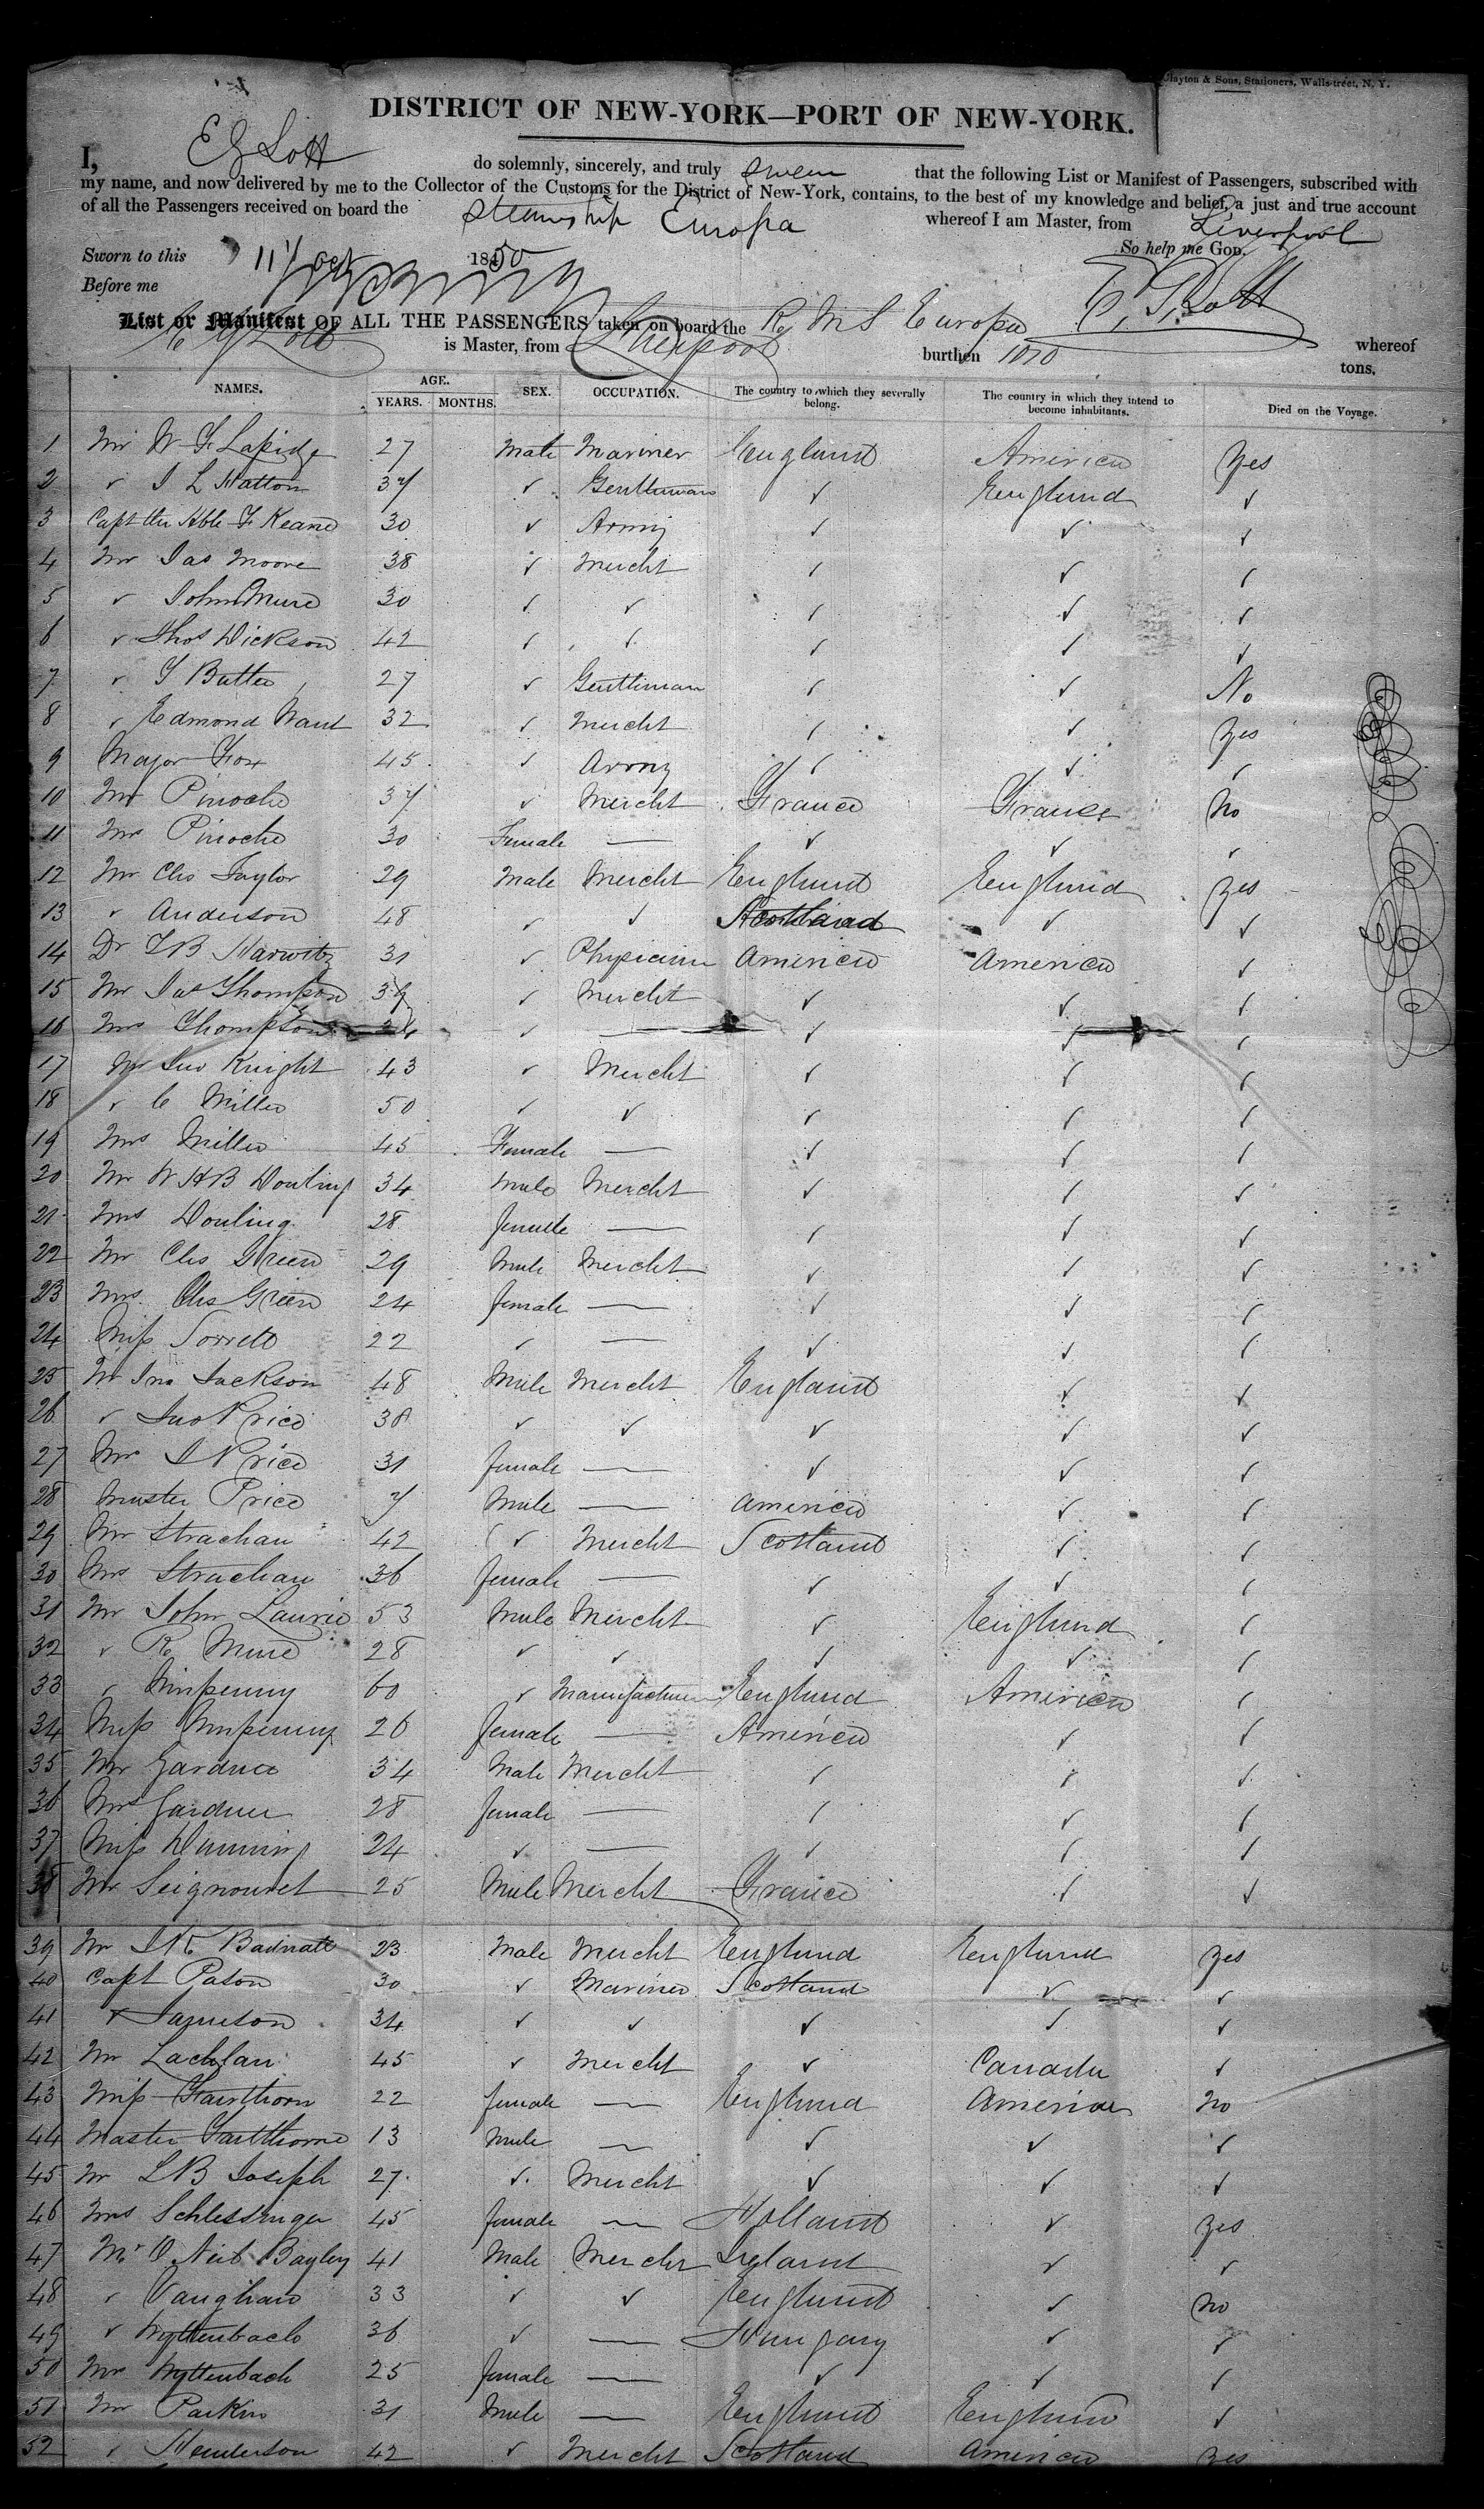 Clayton & Sons, Stationers, Wall-street, N. Y.
DISTRICT OF NEW-YORK—PORT OF NEW-YORK.
I, E G Lott do solemnly, sincerely, and truly swear that the following List or Manifest of Passengers, subscribed with
my name, and now delivered by me to the Collector of the Customs for the District of New-York, contains, to the best of my knowledge and belief, a just and true account
of all the Passengers received on board the Steamship Europa whereof I am Master, from Liverpool
Sworn to this 11 Oct 1850 So help me GOD.
Before me E. G. Lott
List or Manifest OF ALL THE PASSENGERS taken on board the R M S Europa whereof
E G Lott is Master, from Liverpool burthen tons.
NAMES. AGE. SEX. OCCUPATION. The country to which they severally belong. The country in which they intend to become inhabitants. Died on the Voyage.
YEARS. MONTHS.
1 Mr W F Lapidge 27 Male Mariner England America Yes
2 ✓ J L Hatton 37 ✓ Gentleman ✓ England ✓
3 Capt the Hble F Keane 30 ✓ Army ✓ ✓ ✓
4 Mr Jas Moore 38 ✓ Mercht ✓ ✓ ✓
5 ✓ John Mure 30 ✓ ✓ ✓ ✓ ✓
6 ✓ Thos Dickson 42 ✓ ✓ ✓ ✓ ✓
7 ✓ 27 ✓ Gentleman ✓ ✓ No
8 ✓ Edmond 32 ✓ Mercht ✓ ✓ Yes
9 Major Fox 45 ✓ Army ✓ ✓ ✓
10 Mr Pinoche 37 ✓ Mercht France France No
11 Mrs Pinoche 30 Female — ✓ ✓ ✓
12 Mr Chs Taylor 29 Male Mercht England England Yes
13 ✓ Anderson 48 ✓ ✓ Scotland ✓ ✓
14 Dr 31 ✓ Physician America America ✓
15 Mr Jas Thompson ✓ Mercht ✓ ✓ ✓
16 Mrs Thompson ✓ — ✓ ✓ ✓
17 Mr Jno Knight 43 ✓ Mercht ✓ ✓ ✓
18 ✓ C Miller 50 ✓ ✓ ✓ ✓ ✓
19 Mrs Miller 45 Female — ✓ ✓ ✓
20 Mr W H B Douling 34 Male Mercht ✓ ✓ ✓
21 Mrs Douling 28 female — ✓ ✓ ✓
22 Mr Chs Green 29 Male Mercht ✓ ✓ ✓
23 Mrs Chs Green 24 female — ✓ ✓ ✓
24 Miss 22 ✓ — ✓ ✓ ✓
25 Mr Jno Jackson 48 Male Mercht England ✓ ✓
26 ✓ Jno Price 38 ✓ ✓ ✓ ✓ ✓
27 Mrs J Price 31 female — ✓ ✓ ✓
28 Master Price 7 Male — America ✓ ✓
29 Mr Strachan 42 ✓ Mercht Scotland ✓ ✓
30 Mrs Strachan 36 female — ✓ ✓ ✓
31 Mr John Laurie 53 Male Mercht ✓ England ✓
32 ✓ R Mure 28 ✓ ✓ ✓ ✓ ✓
33 ✓ 60 ✓ Manufacturer England America ✓
34 Miss 26 female — America ✓ ✓
35 Mr Gardner 34 Male Mercht ✓ ✓ ✓
36 Mrs Gardner 28 female — ✓ ✓ ✓
37 Miss 24 ✓ — ✓ ✓ ✓
38 Mr Seignouret 25 Male Mercht France ✓ ✓
39 Mr 23 Male Mercht England England Yes
40 Capt Paton 30 ✓ Mariner Scotland ✓ ✓
41 ✓ Jameson 34 ✓ ✓ ✓ ✓ ✓
42 Mr Lachlan 45 ✓ Mercht ✓ Canada ✓
43 Miss 22 female — England America No
44 Master 13 Male — ✓ ✓ ✓
45 Mr L B Joseph 27 ✓ Mercht ✓ ✓ ✓
46 Mrs Schlessinger 45 female — Holland ✓ Yes
47 Mr O Neil Bayley 41 Male Mercht Ireland ✓ ✓
48 ✓ Vaughan 33 ✓ ✓ England ✓ No
49 ✓ Wyttenbach 36 ✓ — Hungary ✓ ✓
50 Mrs Wyttenbach 25 female — ✓ ✓ ✓
51 Mr Parkin 31 Male — England England ✓
52 ✓ Henderson 42 ✓ Mercht Scotland America Yes